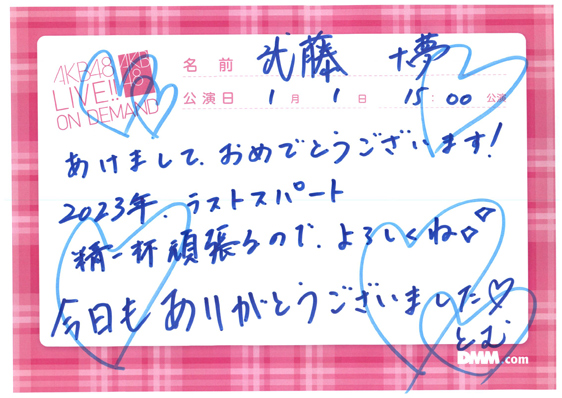 AKB48
LIVE!!
ON DEMAND
AKB
48
名前 武藤 十夢
公演日 1月 1日 15:00 公演
あけまして、おめでとうございます!
2023年、ラストスパート
精一杯頑張るので、よろしくね
今日もありがとうございました♡
とむ
DMM.com